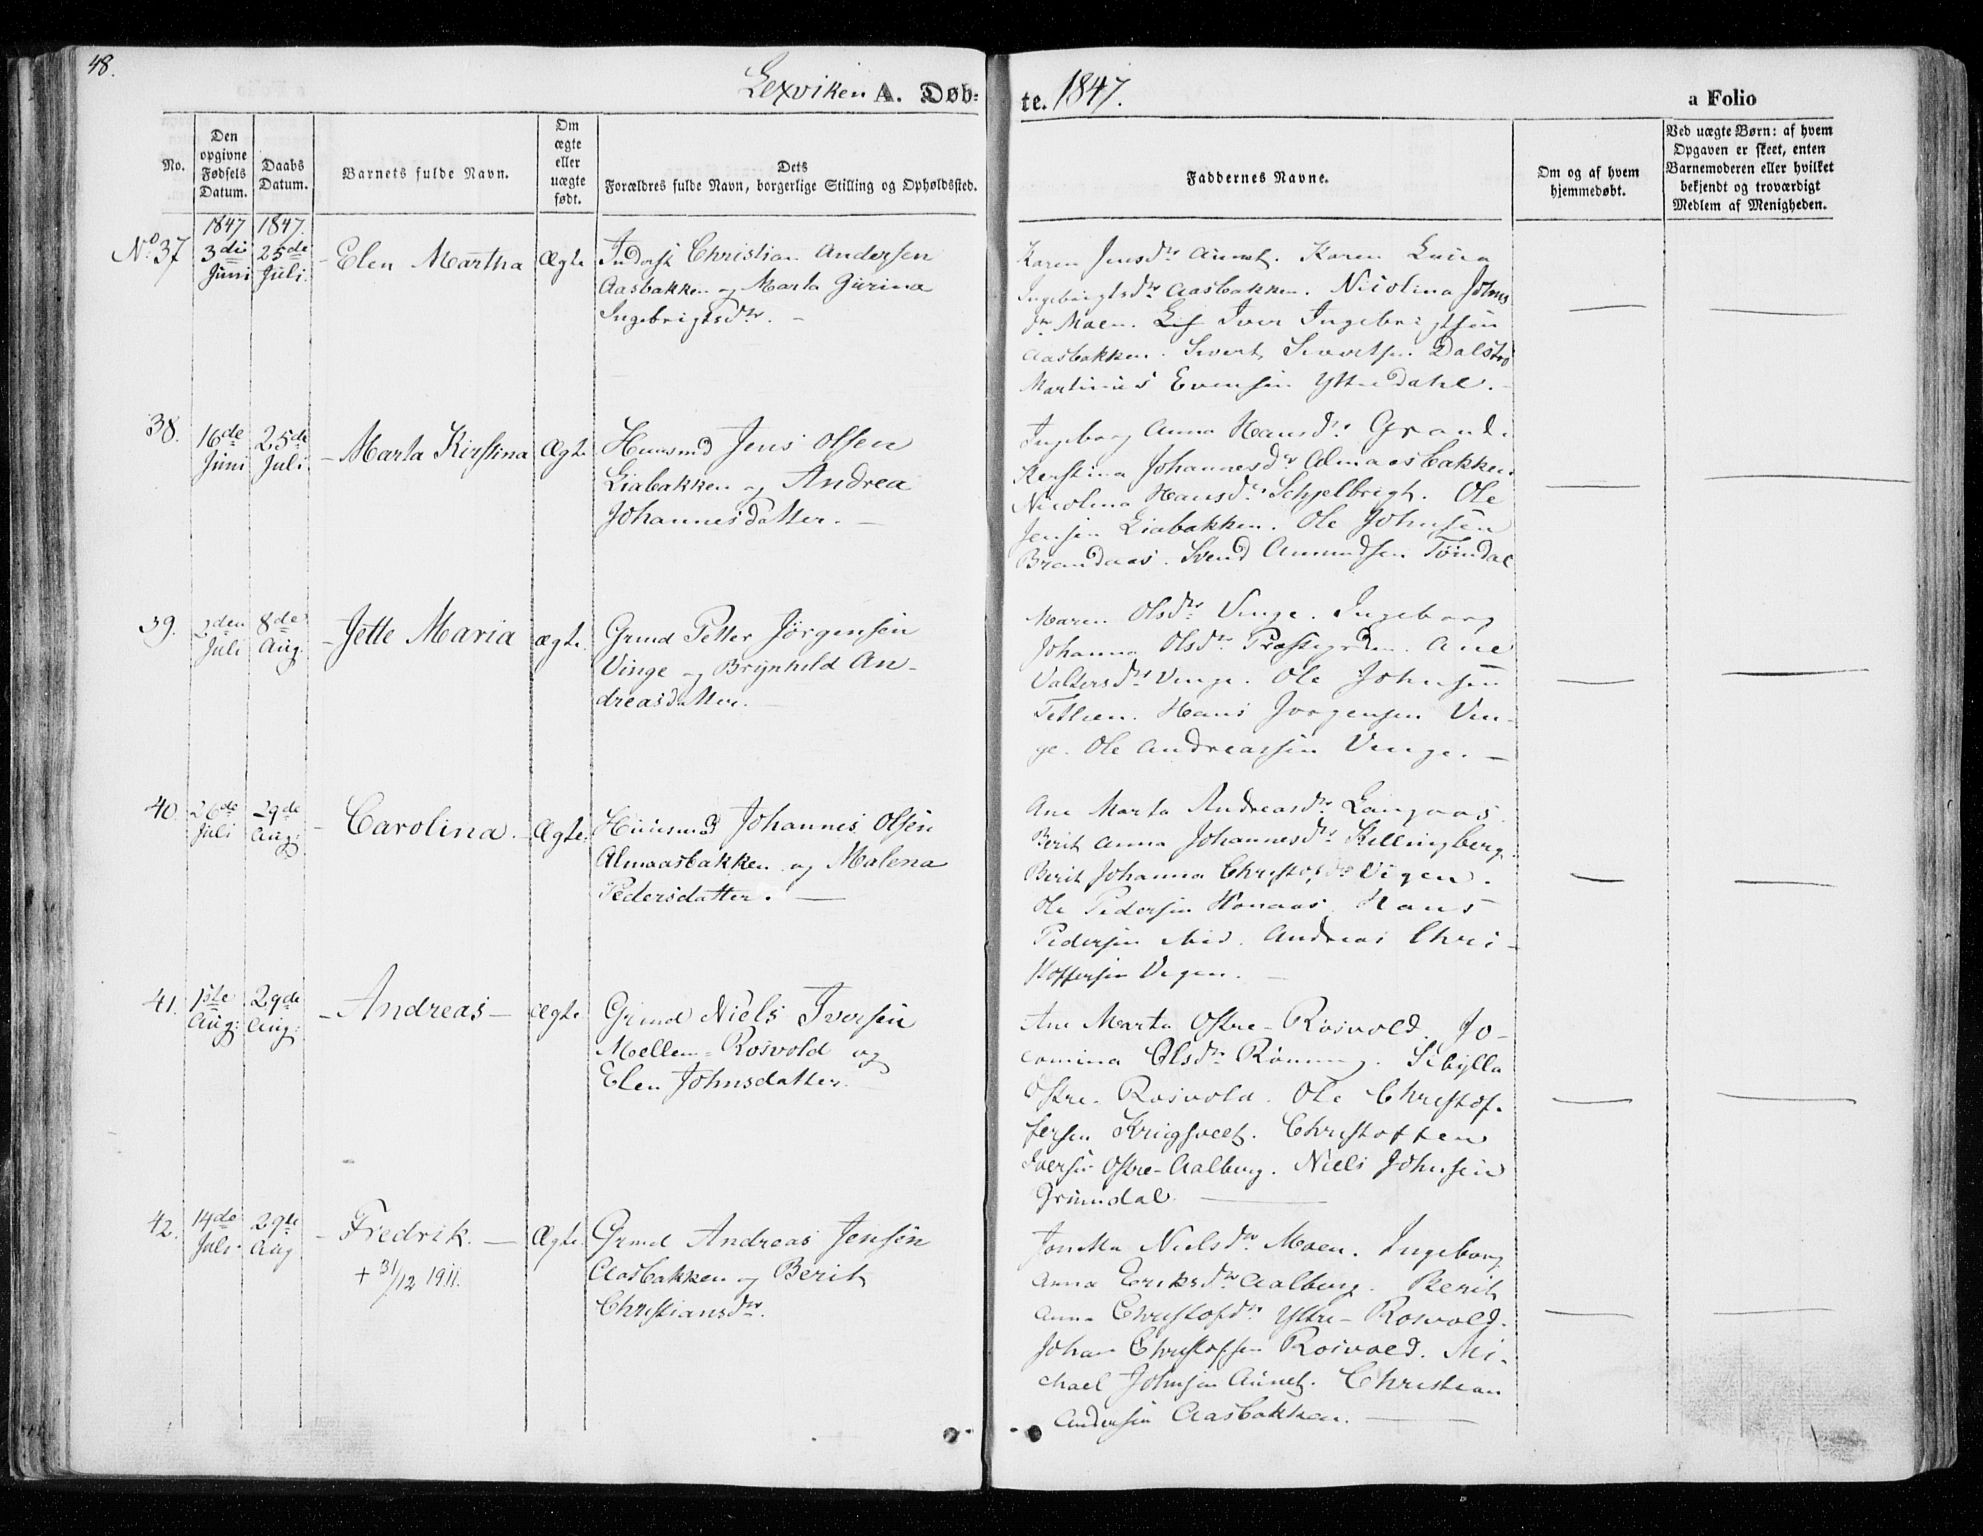 48.
Lexviken A. Døb-
te. 1847.
a Folio
No.
Den opgivne Fødsels Datum.
Daabs Datum.
Barnets fulde Navn.
Om ægte eller uægte født.
Dets
Forældres fulde Navn, borgerlige Stilling og Opholdssted.
Faddernes Navne.
Om og af hvem hjemmedøbt.
Ved uægte Børn: af hvem Opgaven er skeet, enten Barnemoderen eller hvilket bekjendt og troværdigt Medlem af Menigheden.
1847 1847.
No 37 3die Juni 25de Juli. Elen Martha Ægte
Inderst Christian Andersen
Aasbakken og Marta Gurina
Ingebrigtsdr. -
Karen Jensdr Aunet. Karen
Ingebrigtsdr Aasbakken. Nicolina Johns
dr Moen. Iver Ingebrigtsen
Aasbakken. Sivert Sivertsen Dalstrø
Martinus Evensen Yttredahl.
38. 16de Juni 25de Juli - Marta Kirstina Ægte
Huusmd Jens Olsen
Liabakken og Andrea
Johannesdatter. -
Ingeborg Anna Hansdr Grande
Kerstina Johannesdr Almaasbakken
Nicolina Hansdr Schjelbrigt. Ole
Jensen Liabakken. Ole Johnsen
Brandaas. Svend Amundsen Tømdal
39. 2den Juli 8de Aug. - Jette Maria ægte
Grmd Petter Jørgensen
Vinge og Brynhild An-
dreasdatter. -
Maren Olsdr Vinge. Ingeborg
Johanna Olsdr Præstgrden. Ane
Valtersdr Vinge. Ole Johnsen
Tetlien. Hans Jørgensen Vin-
ge. Ole Andreassen Vinge. -
40. 26de Juli 29de Aug: - Carolina. - Ægte
Huusmd Johannes Olsen
Almaasbakken og Malena
Pedersdatter. -
Ane Marta Andreasdr Langaas.
Berit Anna Johannesdr Killingberg.
Berit Johanna Christofdr Vigen.
Ole Pedersen Hanaas Hans
Pedersen ibid. Andreas Chri-
stoffersen Vigen. -
41. 1ste Aug: 29de Aug: - Andreas - Ægte
Grmd Niels Iversen
Mellem-Rosvold og
Elen Johnsdatter. -
Ane Marta Østre-Rosvold. Jo-
comina Olsdr Rønning. Sibylla
Østre-Rosvold. Ole Christof-
fersen Krigsvelt. Christoffen
Iversen Østre-Aalberg. Niels Johnsen
Grønndal -
42. 14de Juli 29de Aug - Fredrik. - Ægte
+ 31/12 1911.
Grmd Andreas Jensen
Aasbakken og Berit
Christiansdr.
Jonetta Nielsdr Moen. Ingeborg
Anna Eriksdr Aalberg. Berit
Anna Christofdr Ystre-Rosvold.
Johan Christoffen Rosvold. Mi-
chael Johnsen Aunet. Christian
Andersen Aasbakken. -